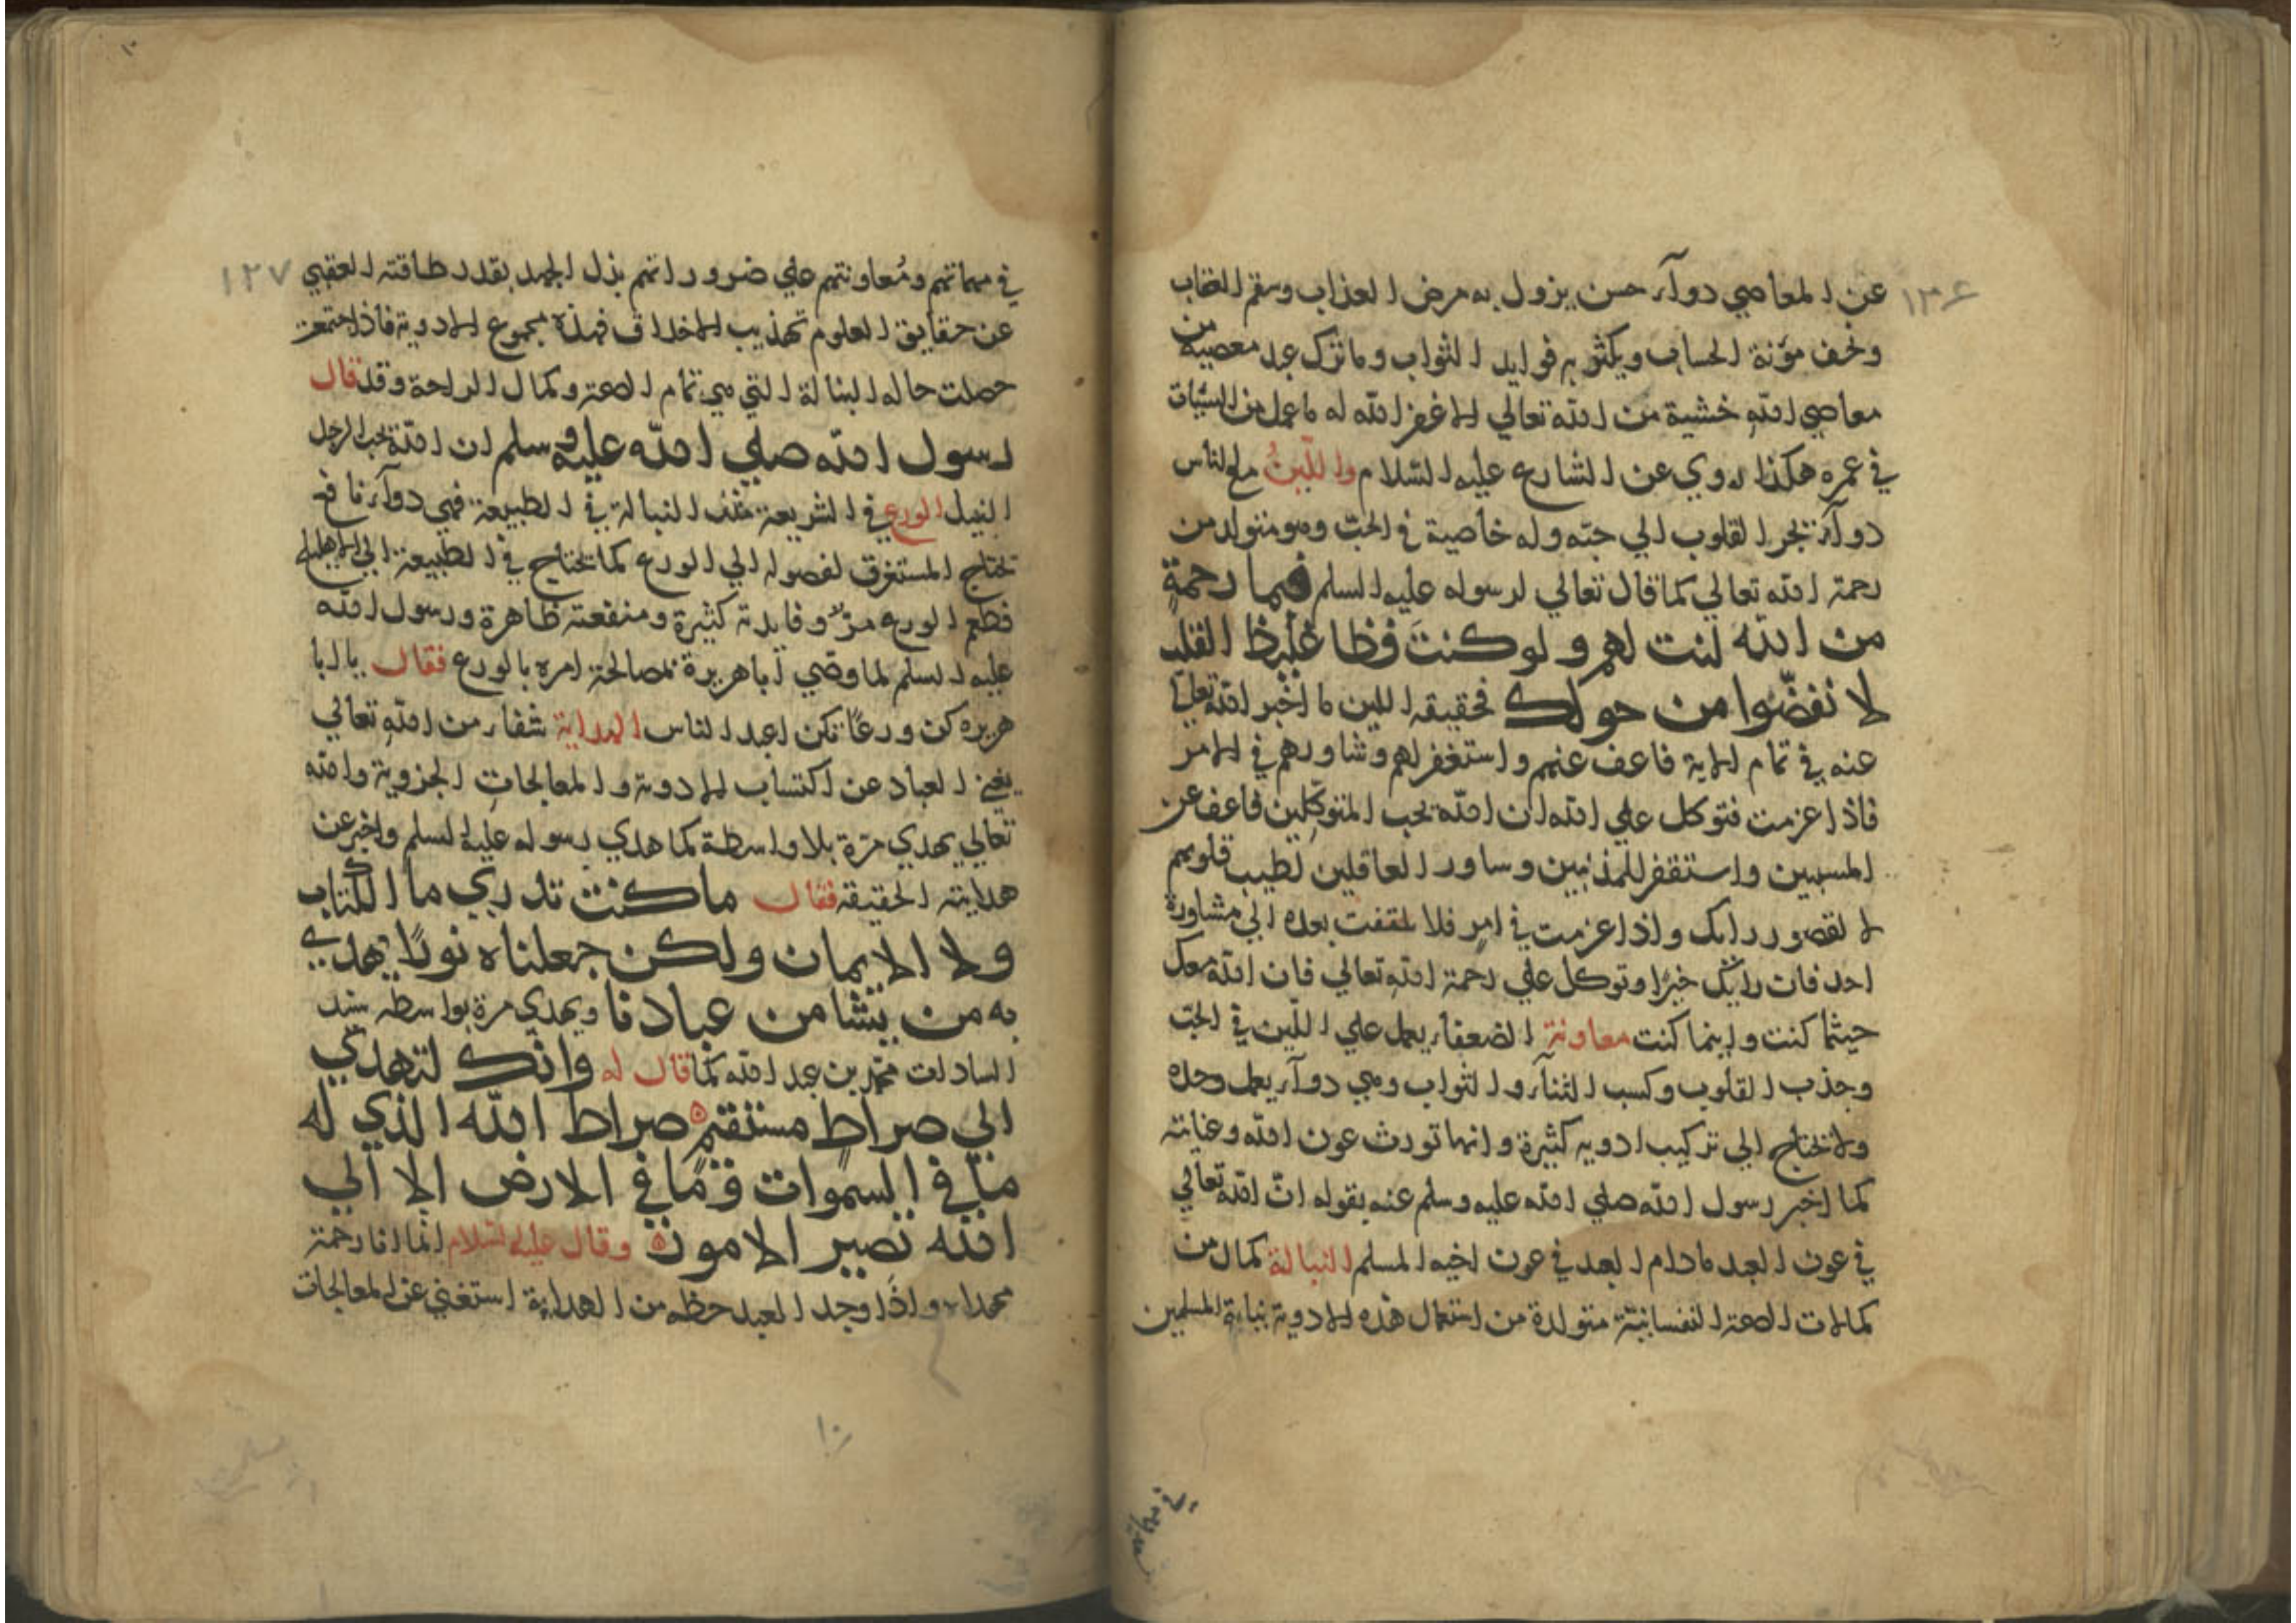 ١٣٤
عن المعاصي دوآء حسن يزول به مرض العذاب وسقم العقاب
وتخف مؤنة الحساب ويكثر به فوايد الثواب وما ترك عبد معصية من
معاصي الله خشية من الله تعالي الا غفر الله له ما عمل من السيئات
في عمره هكذا روي عن الشارع عليه السلام واللين مع الناس
دوآء تجر القلوب الي حبه وله خاصية في الحب وهو متولد من
رحمة الله تعالي كما قال تعالي لرسوله عليه السلم فبما رحمة
من الله لنت لهم ولو كنت فظا غليظ القلب
لا نفضوا من حولك فحقيقه اللين ما اخبر الله تعالي
عنه في تمام الاية فاعف عنهم واستغفر لهم وشاورهم في الامر
فاذا عزمت فتوكل علي الله ان الله يحب المتوكلين فاعف عن
المسيين واستقفر للمذنبين وساور العاقلين لطيب قلوبهم
لا لقصور رايك واذا عزمت في امر فلا تلتفت بعده الي مشاورة
احد فات رايك خبرا وتوكل علي رحمة الله تعالي فان الله معك
حيثما كنت واينما كنت معاونة الضعفاء يعمل علي اللين في الحب
وجذب القلوب وكسب الثنآء والثواب وهي دوآء يعمل وحده
ولا تحتاج الي تركيب ادويه كثيرة وانها تورث عون الله وعنايته
كما اخبر رسول الله صلي الله عليه وسلم عنه بقوله انّ الله تعالي
في عون العبد مادام العبد في عون اخيه المسلم النبالة كمال من
كمالات الصحة النفسانية متولدة من استعمال هذه الادوية المسلمين
١٢٧
في مهماتهم ومُعاونتهم علي ضروراتهم بذل الجهد بقدر طاقته العقبي
عن حقايق العلوم تهذيب الاخلاق فهذه مجموع الادوية فاذا اجتمعت
حصلت حاله النبالة التي هي تمام الصحة وكمال الراحة وقد قال
رسول الله صلي الله عليه وسلم ان الله يحب الرجل
النبيل الورع في الشريعة مثل النبالة في الطبيعة فهي دوآء نافع
تحتاج المستغرق لفصوله الي الورع كما تحتاج في الطبيعة الي الاهليلج
فطعم الورع مرّ وفايدته كثيرة ومنفعته ظاهرة ورسول الله
عليه السلم لما وصّي اباهريرة بمصالحة امره بالورع فقال يا ابا
هريره كن ورعًا تكن اعبد الناس الهداية شفاء من الله تعالي
يغني العباد عن اكتساب الادوية والمعالجات الجزوية والله
تعالي يهدي مرّة بلا واسطة كما هدي رسوله عليه السلم واخبر عن
هدايته الحقيقه فقال ماكنت تدري ما الكتاب
ولا الايمان ولكن جعلناه نورًا يهدي
به من يشا من عبادنا ويهدي مرة بواسطه سيد
السادات محمد بن عبد الله كما قال له وانك لتهدي
الي صراط مستقيم صراط الله الذي له
ما في السموات وما في الارض الا الي
الله تصير الامور وقال عليه السلام انما انا رحمة
مهداه واذا وجد العبد حظه من الهداية استغني عن المعالجات